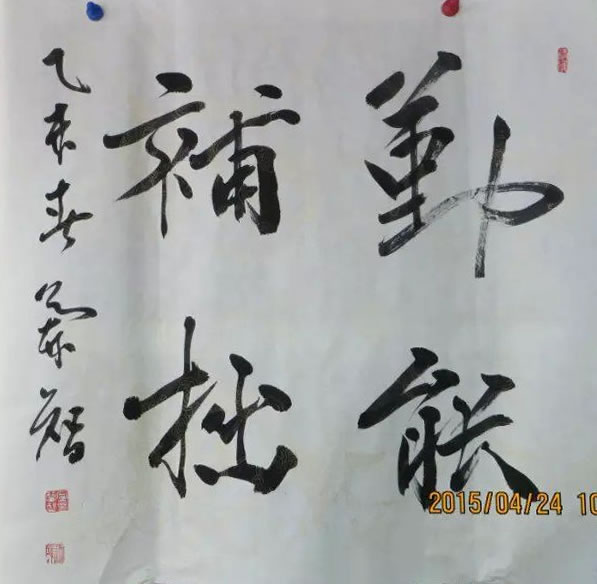 勤能
補拙
乙未春
2015/04/24 10